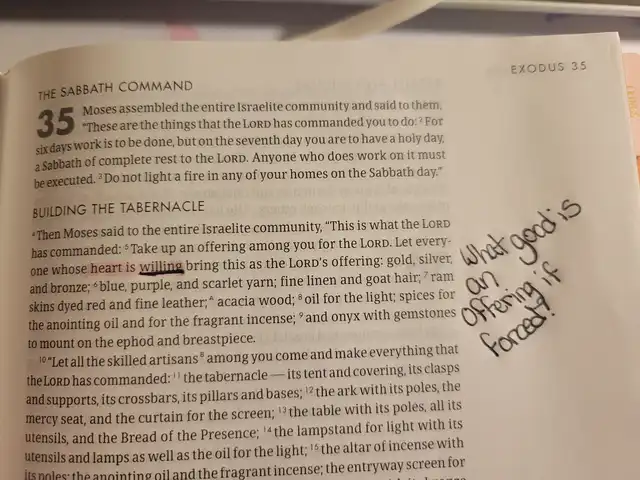 EXODUS 35
THE SABBATH COMMAND
35 Moses assembled the entire Israelite community and said to them,
"These are the things that the LORD has commanded you to do: ² For
six days work is to be done, but on the seventh day you are to have a holy day,
a Sabbath of complete rest to the LORD. Anyone who does work on it must
be executed. ³ Do not light a fire in any of your homes on the Sabbath day."
BUILDING THE TABERNACLE
⁴ Then Moses said to the entire Israelite community, "This is what the LORD
has commanded: ⁵ Take up an offering among you for the LORD. Let every-
one whose heart is willing bring this as the LORD's offering: gold, silver,
and bronze; ⁶ blue, purple, and scarlet yarn; fine linen and goat hair; ⁷ ram
skins dyed red and fine leather;ᴬ acacia wood; ⁸ oil for the light; spices for
the anointing oil and for the fragrant incense; ⁹ and onyx with gemstones
to mount on the ephod and breastpiece.
¹⁰ "Let all the skilled artisansᴮ among you come and make everything that
the LORD has commanded: ¹¹ the tabernacle — its tent and covering, its clasps
and supports, its crossbars, its pillars and bases; ¹² the ark with its poles, the
mercy seat, and the curtain for the screen; ¹³ the table with its poles, all its
utensils, and the Bread of the Presence; ¹⁴ the lampstand for light with its
utensils and lamps as well as the oil for the light; ¹⁵ the altar of incense with
its poles; the anointing oil and the fragrant incense; the entryway screen for
What good is
an
offering if
forced?